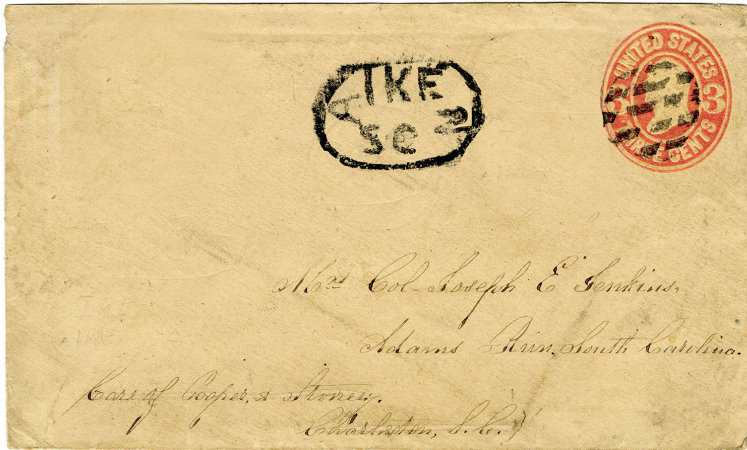 UNITED STATES
3 3
THREE CENTS
AIKEN
SC
Mrs Col Joseph E Jenkins,
Adams Run, South Carolina.
Care of Cooper, &
Charleston, S.C.